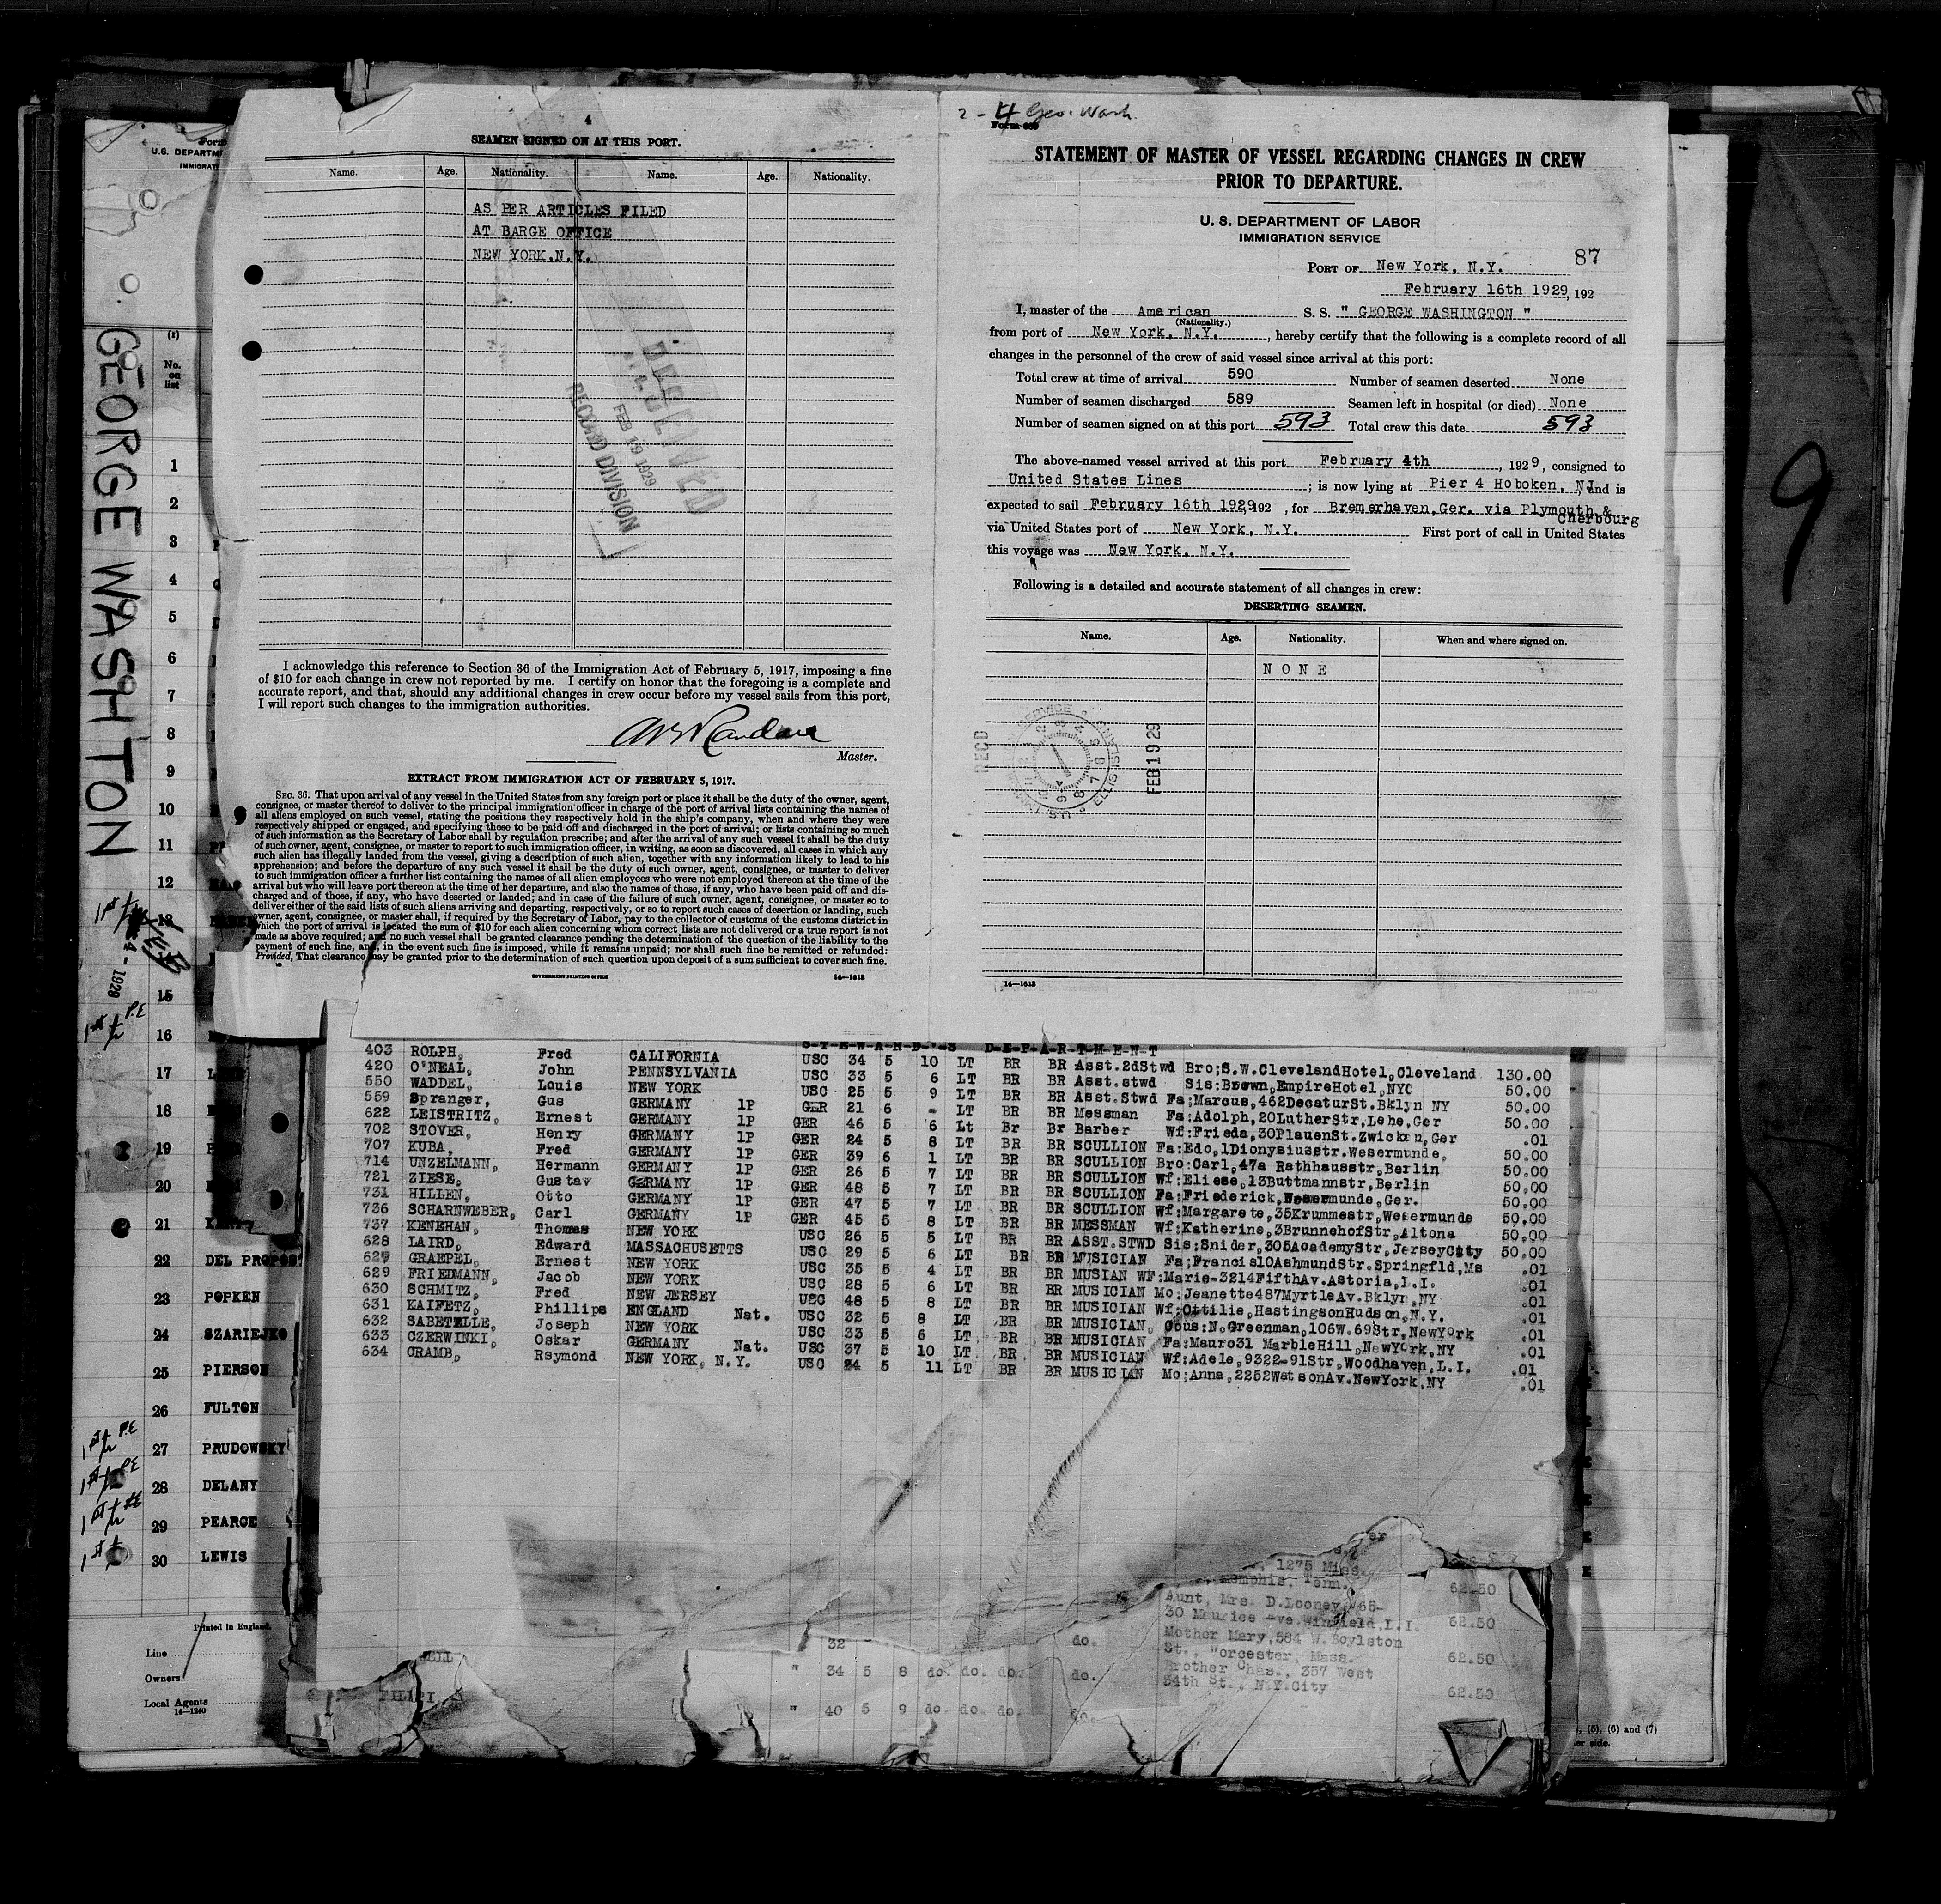 4
SEAMEN SIGNED ON AT THIS PORT.
Name. Age. Nationality. Name. Age. Nationality.
AS PER ARTICLES FILED
AT BARGE OFFICE
NEW YORK.N.Y.
RECEIVED
FEB 19 1929
RECORD DIVISION
I acknowledge this reference to Section 36 of the Immigration Act of February 5, 1917, imposing a fine
of $10 for each change in crew not reported by me. I certify on honor that the foregoing is a complete and
accurate report, and that, should any additional changes in crew occur before my vessel sails from this port,
I will report such changes to the immigration authorities.
Master.
EXTRACT FROM IMMIGRATION ACT OF FEBRUARY 5, 1917.
SEC. 36. That upon arrival of any vessel in the United States from any foreign port or place it shall be the duty of the owner, agent,
consignee, or master thereof to deliver to the principal immigration officer in charge of the port of arrival lists containing the names of
all aliens employed on such vessel, stating the positions they respectively hold in the ship's company, when and where they were
respectively shipped or engaged, and specifying those to be paid off and discharged in the port of arrival; or lists containing so much
of such information as the Secretary of Labor shall by regulation prescribe; and after the arrival of any such vessel it shall be the duty
of such owner, agent, consignee, or master to report to such immigration officer, in writing, as soon as discovered, all cases in which any
such alien has illegally landed from the vessel, giving a description of such alien, together with any information likely to lead to his
apprehension; and before the departure of any such vessel it shall be the duty of such owner, agent, consignee, or master to deliver
to such immigration officer a further list containing the names of all alien employees who were not employed thereon at the time of the
arrival but who will leave port thereon at the time of her departure, and also the names of those, if any, who have been paid off and dis-
charged and of those, if any, who have deserted or landed; and in case of the failure of such owner, agent, consignee, or master so to
deliver either of the said lists of such aliens arriving and departing, respectively, or so to report such cases of desertion or landing, such
owner, agent, consignee, or master shall, if required by the Secretary of Labor, pay to the collector of customs of the customs district in
which the port of arrival is located the sum of $10 for each alien concerning whom correct lists are not delivered or a true report is not
made as above required; and no such vessel shall be granted clearance pending the determination of the question of the liability to the
payment of such fine, and, in the event such fine is imposed, while it remains unpaid; nor shall such fine be remitted or refunded:
Provided, That clearance may be granted prior to the determination of such question upon deposit of a sum sufficient to cover such fine.
GOVERNMENT PRINTING OFFICE 14—1613
2 - 4 Geo. Wash.
Form 689
STATEMENT OF MASTER OF VESSEL REGARDING CHANGES IN CREW
PRIOR TO DEPARTURE.
U. S. DEPARTMENT OF LABOR
IMMIGRATION SERVICE
87
PORT OF New York, N.Y.
February 16th 1929, 192
I, master of the American S. S. " GEORGE WASHINGTON "
(Nationality.)
from port of New York, N.Y. , hereby certify that the following is a complete record of all
changes in the personnel of the crew of said vessel since arrival at this port:
Total crew at time of arrival 590 Number of seamen deserted None
Number of seamen discharged 589 Seamen left in hospital (or died) None
Number of seamen signed on at this port 593 Total crew this date 593
The above-named vessel arrived at this port February 4th , 1929, consigned to
United States Lines ; is now lying at Pier 4 Hoboken, NJ and is
expected to sail February 16th 1929 192 , for Bremerhaven,Ger. via Plymouth &
Cherbourg
via United States port of New York, N.Y. First port of call in United States
this voyage was New York, N.Y.
Following is a detailed and accurate statement of all changes in crew:
DESERTING SEAMEN.
Name. Age. Nationality. When and where signed on.
N O N E
RECD
FEB 19 29
14—1613
9
Form
U.S. DEPARTM
IMMIGRAT
GEORGE WASHTON
(1)
No.
on
list
1
2
3
4
5
6
7
8
9
10
11
12
13
15
16
17
18
19
20
21
22 DEL PROPOS
23 POPKEN
24 SZARIEJKO
25 PIERSON
26 FULTON
27 PRUDOWSKY
28 DELANY
29 PEARCE
30 LEWIS
4 - 1929
Printed in England.
Line
Owners
Local Agents
14—1240
S-T-E-W-A-R-D-'-S D-E-P-A-R-T-M-E-N-T
403 ROLPH, Fred CALIFORNIA USC 34 5 10 LT BR BR Asst.2dStwd Bro;S.W.ClevelandHotel,Cleveland 130.00
420 O'NEAL, John PENNSYLVANIA USC 33 5 6 LT BR BR Asst.stwd Sis:Brown,EmpireHotel,NYC 50.00
550 WADDEL, Louis NEW YORK USC 25 5 9 LT BR BR Asst.Stwd Fa;Marcus,462DecaturSt.Bklyn NY 50.00
559 Spranger, Gus GERMANY 1P GER 21 6 - LT BR BR Messman Fa:Adolph,20LutherStr,Lehe,Ger 50.00
622 LEISTRITZ, Ernest GERMANY 1P GER 46 5 6 Lt Br Br Barber Wf:Frieda,30PlauenSt.Zwickau,Ger .01
702 STOVER, Henry GERMANY 1P GER 24 5 8 LT BR BR SCULLION Fa:Edo,1Dionysiusstr.Wesermunde, 50.00
707 KUBA, Fred GERMANY 1P GER 39 6 1 LT BR BR SCULLION Bro:Carl,47a Rathhausstr,Berlin 50.00
714 UNZELMANN, Hermann GERMANY 1P GER 26 5 7 LT BR BR SCULLION Wf:Eliese,13Buttmannstr,Berlin 50.00
721 ZIESE, Gustav GERMANY 1P GER 48 5 7 LT BR BR SCULLION Fa:Friederick,Wesermunde,Ger. 50.00
731 HILLEN, Otto GERMANY 1P GER 47 5 7 LT BR BR SCULLION Wf:Margarete,35Krummestr,Wesermunde 50.00
736 SCHARNWEBER, Carl GERMANY 1P GER 45 5 8 LT BR BR MESSMAN Wf:Katherine,3BrunnehofStr,Altona 50.00
737 KENEHAN, Thomas NEW YORK USC 26 5 5 LT BR BR ASST.STWD Sis;Snider,305AcademyStr,JerseyCity 50.00
628 LAIRD, Edward MASSACHUSETTS USC 29 5 6 LT BR BR MUSICIAN Fa;Francis10AshmundStr.Springfld,Ms .01
627 GRAEPEL, Ernest NEW YORK USC 35 5 4 LT BR BR MUSIAN WF:Marie-3214FifthAv.Astoria,L.I. .01
629 FRIEDMANN, Jacob NEW YORK USC 28 5 6 LT BR BR MUSICIAN Mo;Jeanette487MyrtleAv.Bklyn,NY .01
630 SCHMITZ, Fred NEW JERSEY USC 48 5 8 LT BR BR MUSICIAN Wf;Ottilie,HastingsonHudson,N.Y. .01
631 KAIFETZ, Phillips ENGLAND Nat. USC 32 5 8 LT BR BR MUSICIAN, Cous:N.Greenman,106W.69Str,NewYork .01
632 SABETELLE, Joseph NEW YORK USC 33 5 6 LT BR BR MUSICIAN Fa:Mauro31 MarbleHill,NewYork,NY .01
633 CZERWINKI, Oskar GERMANY Nat. USC 37 5 10 LT BR BR MUSICIAN Wf:Adele,9322-91Str,Woodhaven,L.I. .01
634 CRAMB, Rsymond NEW YORK, N.Y. USC 24 5 11 LT BR BR MUSICIAN Mo;Anna,2252WatsonAv.NewYork,NY .01
1275 Miss.
Memphis, Tenn. 62.50
Aunt, Mrs. D.Looney, 65-
30 Maurice Ave.Winfield,L.I. 62.50
32 do. Mother Mary,584 W.Boylston
St., Worcester, Mass. 62.50
" 34 5 8 do. do. do. do. Brother Chas., 357 West
34th St., N.Y.City 62.50
FILIPI " 40 5 9 do. do. do. do.
, (5), (6) and (7)
er side.